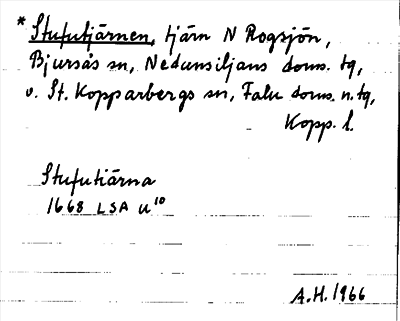 * Stufutjärnen, tjärn N Rogsjön,
Bjursås sn, Nedansiljans doms. tg,
o. St. Kopparbergs sn, Falu doms. n. tg,
Kopp. l.
Stufutiärna
1668 LSA U¹⁰
A.H. 1966